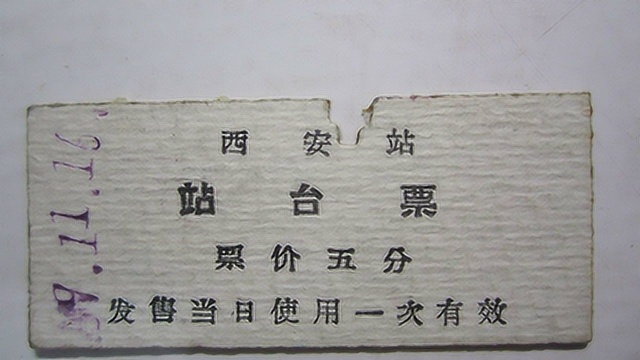 西安站
站台票
票价五分
发售当日使用一次有效
9.11.16.